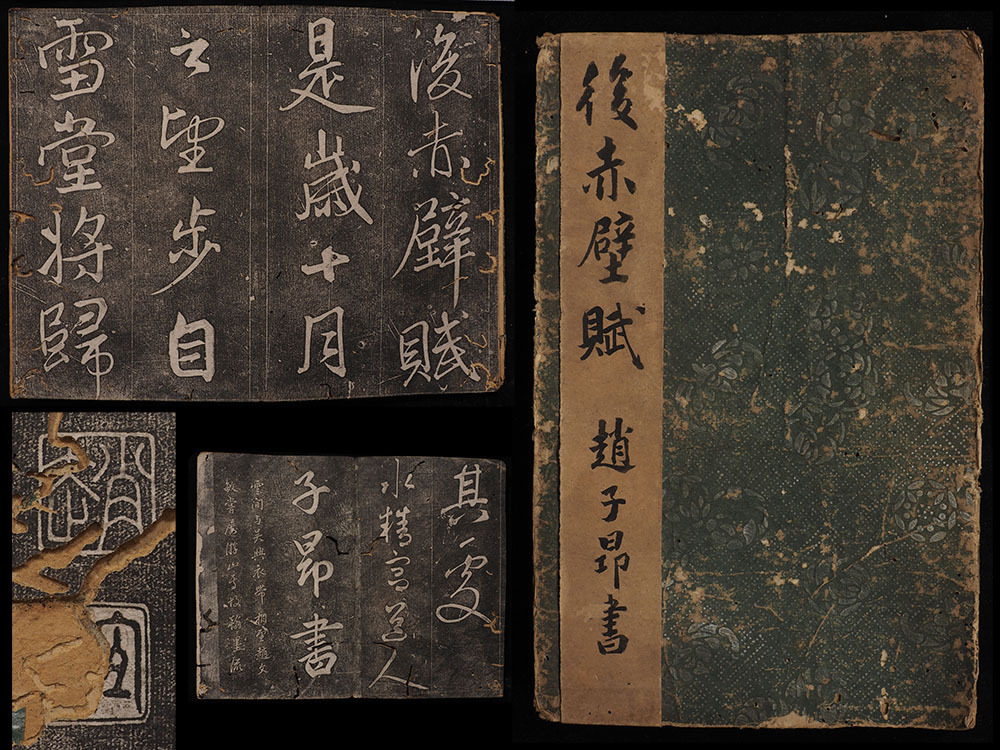 後赤壁賦
是歲十月
之望步自
雪堂將歸
其處
水精宮道人
子昂書
後赤壁賦 趙子昂書